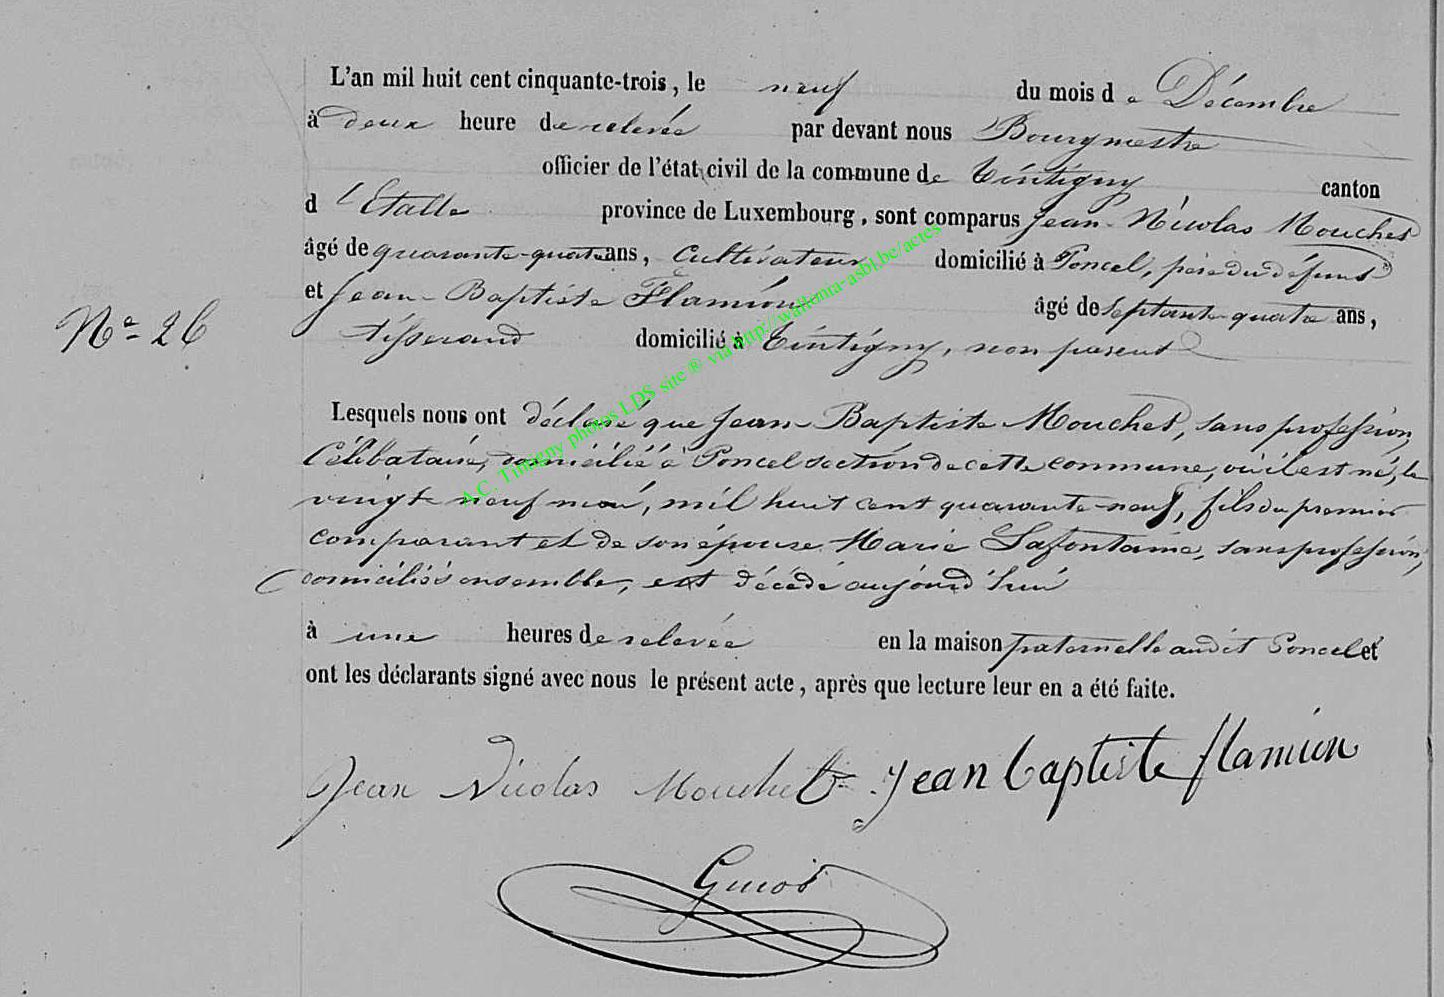 L'an mil huit cent cinquante-trois, le neuf du mois de Décembre
à deux heure de relevée par devant nous Bourgmestre
officier de l'état civil de la commune de Tintigny canton
d'Etalle province de Luxembourg, sont comparus Jean-Nicolas Mouchet
âgé de quarante-quatre ans, Cultivateur domicilié à Poncel, père du défunt
et Jean-Baptiste Flamion âgé de septante-quatre ans,
N° 26
tisserand domicilié à Tintigny, non parent
Lesquels nous ont déclaré que Jean-Baptiste Mouchet, sans profession,
Célibataire, domicilié à Poncel section de cette commune, où il est né, le
vingt neuf mai, mil huit cent quarante-neuf, fils du premier
comparant et de son épouse Marie Lafontaine, sans profession,
domiciliés ensemble, est décédé aujourd'hui
à une heures de relevée en la maison paternelle audit Poncel et
ont les déclarants signé avec nous le présent acte, après que lecture leur en a été faite.
Jean Nicolas Mouchet Jean baptiste flamion
Guiot
A.C. Tintigny photos LDS site ® via http://wallonia-asbl.be/actes